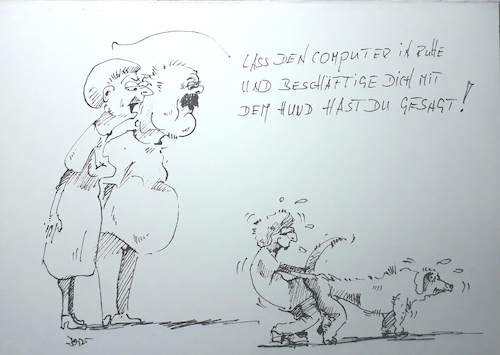 LASS DEN COMPUTER IN RUHE
UND BESCHÄFTIGE DICH MIT
DEM HUND HAST DU GESAGT!